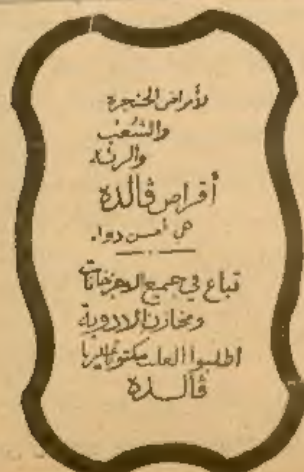 لأمراض الحنجرة
والشعب
والرئة
أقراص ڤالده
هى أحسن دواء
تباع في جميع الاجزخانات
ومخازن الادوية
اطلبوا العلب مكتوب عليها
ڤالده